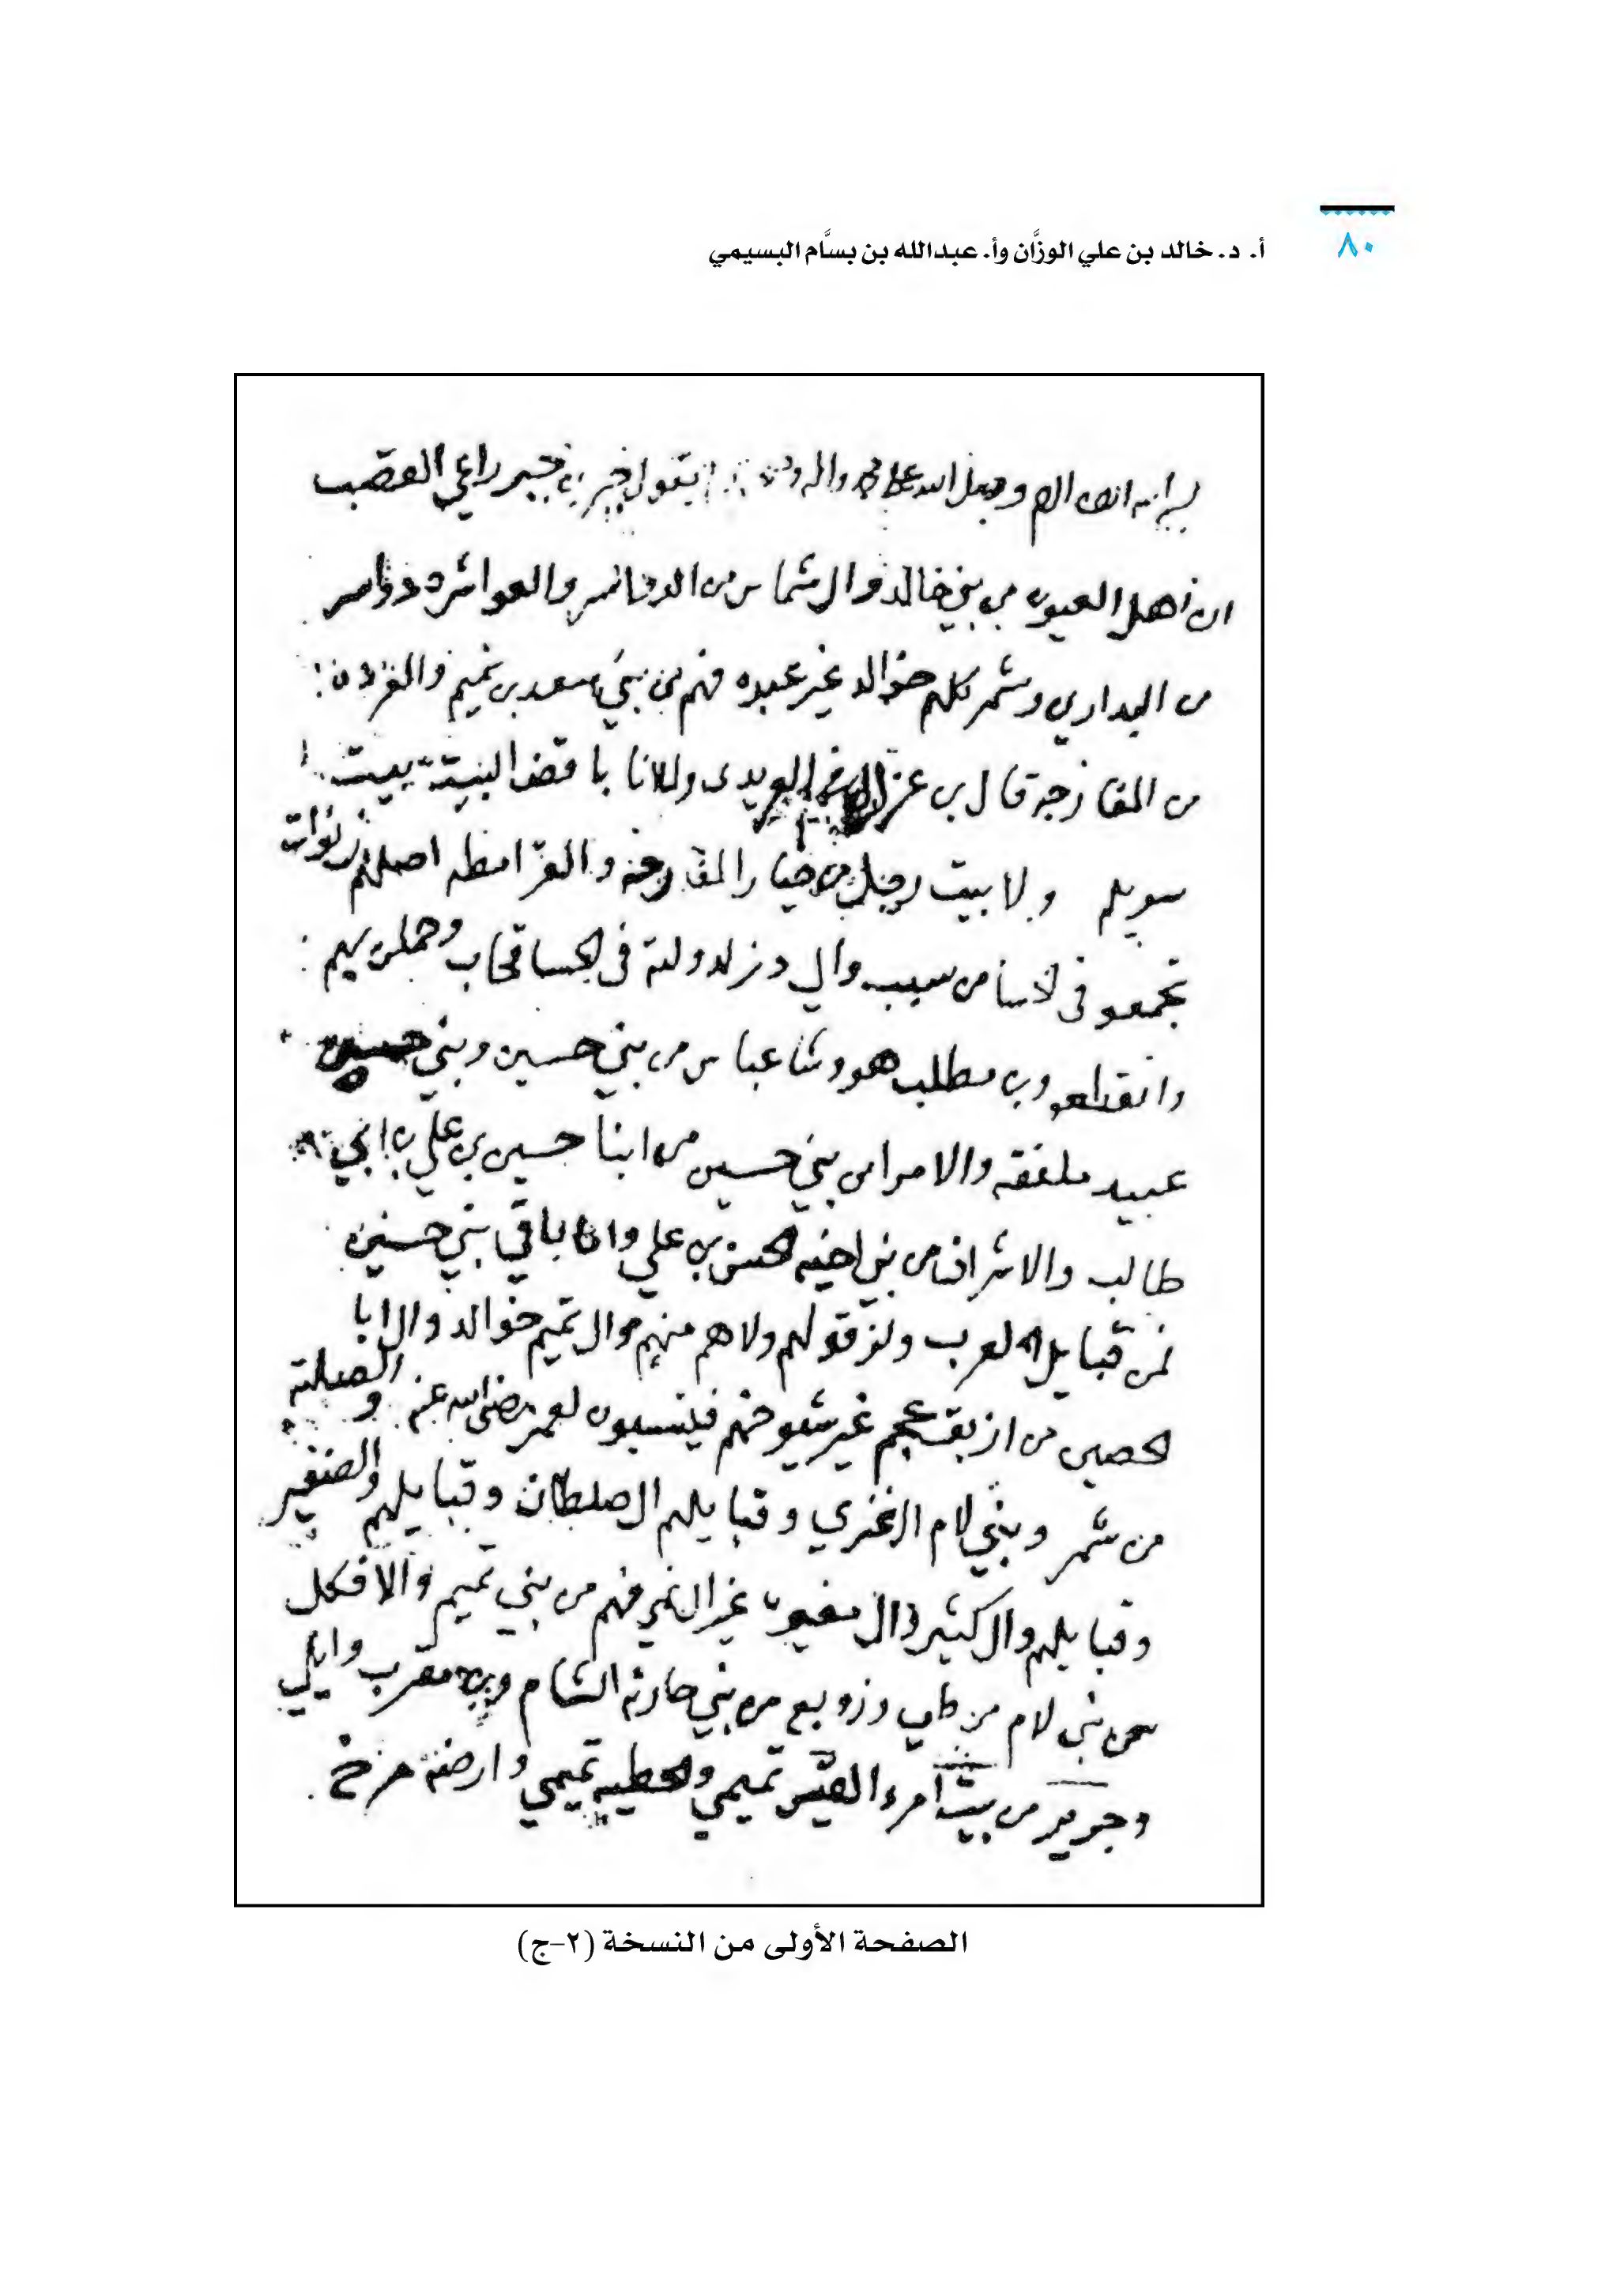 ٨٠
أ. د. خالد بن علي الوزَّان وأ. عبدالله بن بسَّام البسيمي
يقول جبر بن جبر راعي القصب
ان اهل العيون من بني خالد وال شماس من الدواسر والعواشزه دواسر
من البداري وشمر كلهم خوالد غير عبده فهم من بني سعد بن تميم والفزده
من المفازجة قال بن عزاليم العريدى ولانا باقضا البنية بيت
سويلم ولا بيت رجل من خيار المفارجه والقرامطه اصلهم
تجمعو في لاسا من سبب وال دولة في لحسا
وانقطعو وبن مطلب هو وشا عباس من بني حسين وبني حسين
عبيد ملفقه والامرا من بني حسين من ابنا حسين بن علي بن ابي
طالب والاشراف من بني اخيه لحسن بن علي واما باقي بني حسين
فمن قبايل العرب ولزقو لهم ولاهم منهم وال تميم خوالد وال ابا
لحصين من ازبق عجم غير شيوخهم فينسبون لعمر رضى الله عنه والصبلة
من شمر وبني لام الغزي وقبايلهم ال صلطان وقبايلهم والضفير
وقبايلهم وال كثير وال مغيره غير ال نمير فهم من بني تميم والافكل
من بني لام من طي وزوبع من بني حارثه الشام وبن مقرب وايلي
وجرير من بيت امرء القيس تميمي ولحطيه تميمي وارضه مرخ
الصفحة الأولى من النسخة (٢-ج)